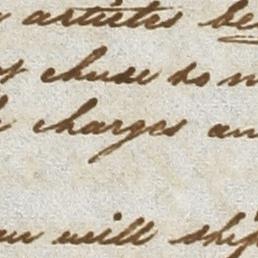 artistes be
chuse to m
charges an
will ship